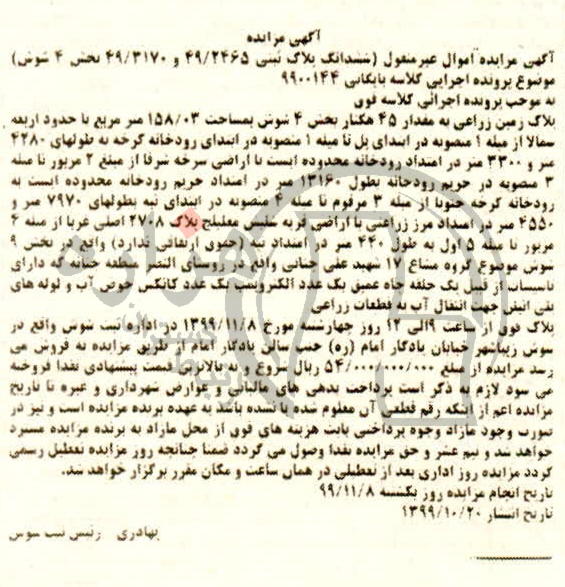 آگهی مزایده
آگهی مزایده اموال غیرمنقول (ششدانگ پلاک ثبتی ۴۹/۲۴۶۵ و ۴۹/۳۱۷۰ بخش ۴ شوش)
موضوع پرونده اجرایی کلاسه بایگانی ۹۹۰۰۱۴۴
به موجب پرونده اجرائی کلاسه فوق
پلاک زمین زراعی به مقدار ۴۵ هکتار بخش ۴ شوش بمساحت ۱۵۸/۰۳ متر مربع با حدود اربعه
شمالا از میله ۱ منصوبه در ابتدای پل تا میله ۱ منصوبه در ابتدای رودخانه کرخه به طولهای ۴۲۸۰
متر و ۳۳۰۰ متر در امتداد رودخانه محدوده ایست با اراضی سرخه شرقا از میلغ ۲ مزبور تا میله
۳ منصوبه در حریم رودخانه بطول ۱۳۱۶۰ متر در امتداد حریم رودخانه محدوده ایست به
رودخانه کرخه جنوبا از میله ۳ مرقوم تا میله ۴ منصوبه در ابتدای تپه بطولهای ۷۹۷۰ متر و
۴۵۵۰ متر در امتداد مرز زراعتی با اراضی قریه شلیش معلیلج پلاک ۲۷۰۸ اصلی غربا از میله ۶
مزبور تا میله ۵ اول به طول ۴۴۰ متر در امتداد تپه (حقوق ارتفاقی ندارد) واقع در بخش ۹
شوش موضوع گروه مشاع ۱۷ شهید علی چنانی واقع در روستای النصر منطقه چنانه که دارای
تاسیسات از قبیل یک حلقه چاه عمیق یک عدد الکتروپمپ یک عدد کانکس حوض آب و لوله های
پلی اتیلن جهت انتقال آب به قطعات زراعی
پلاک فوق از ساعت ۹الی ۱۲ روز چهارشنبه مورخ ۱۳۹۹/۱۱/۸ در اداره ثبت شوش واقع در
شوش زیباشهر خیابان یادگار امام (ره) جنب سالن یادگار امام از طریق مزایده به فروش می
رسد مزایده از مبلغ ۵۴/۰۰۰/۰۰۰/۰۰۰ ریال شروع و به بالاترین قیمت پیشنهادی نقدا فروخته
می شود لازم به ذکر است پرداخت بدهی های مالیاتی و عوارض شهرداری و غیره تا تاریخ
مزایده اعم از اینکه رقم قطعی آن معلوم شده یا نشده باشد به عهده برنده مزایده است و نیز در
صورت وجود مازاد وجوه پرداختی بابت هزینه های فوق از محل مازاد به برنده مزایده مسترد
خواهد شد و نیم عشر و حق مزایده نقدا وصول می گردد ضمنا چنانچه روز مزایده تعطیل رسمی
گردد مزایده روز اداری بعد از تعطیلی در همان ساعت و مکان مقرر برگزار خواهد شد.
تاریخ انجام مزایده روز یکشنبه ۹۹/۱۱/۸
تاریخ انتشار ۱۳۹۹/۱۰/۲۰
بهادری رئیس ثبت شوش